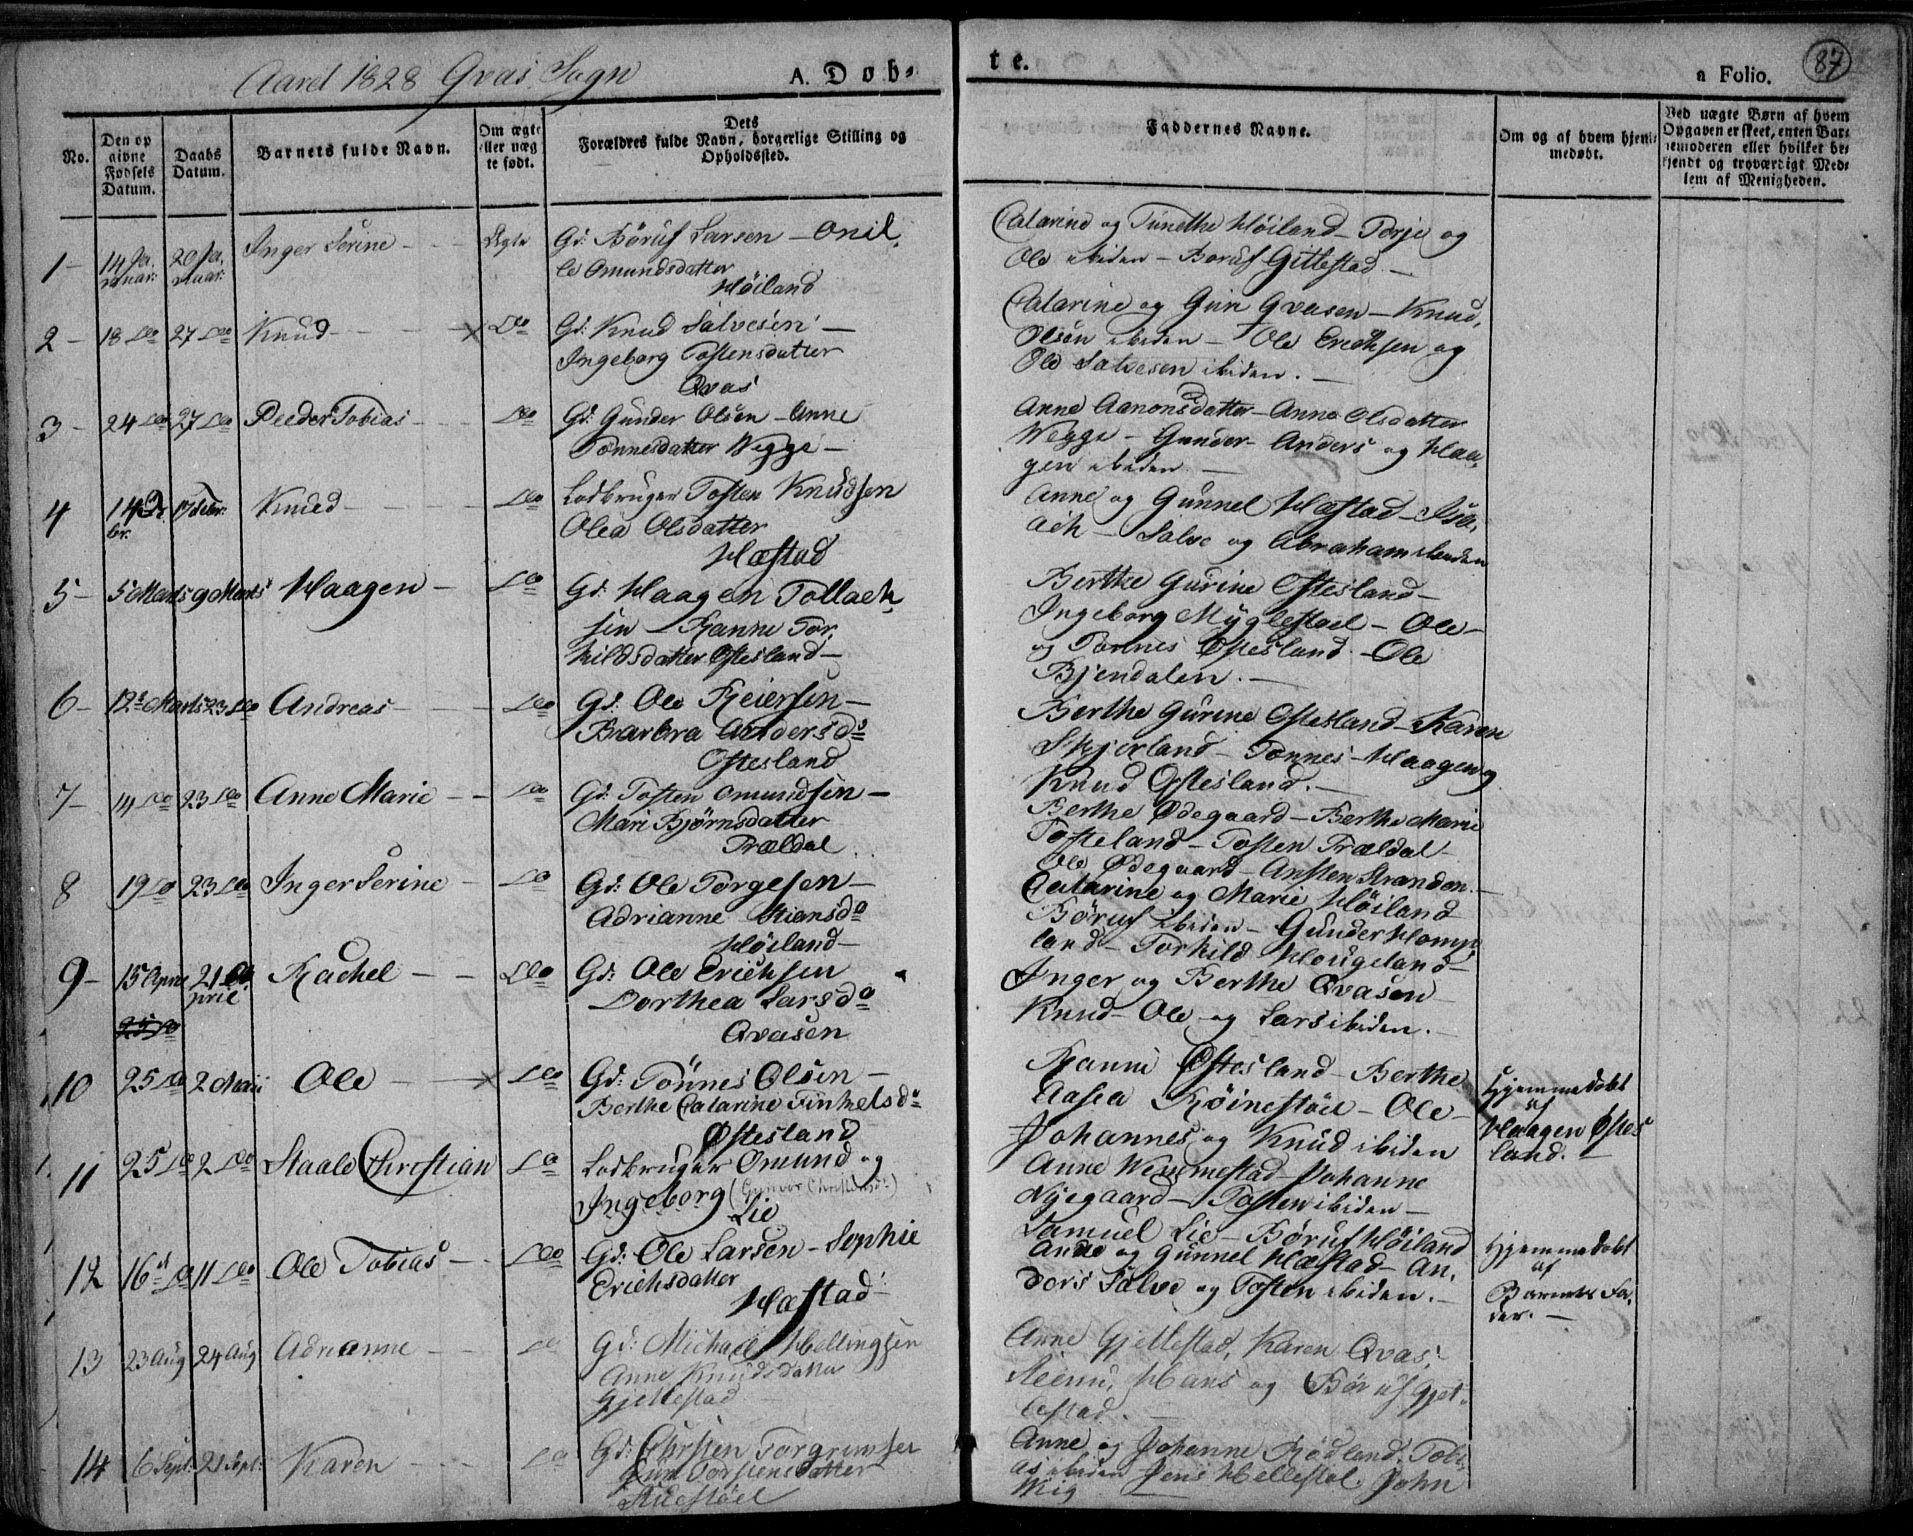 Aaret 1828 Qvas Sogn
A. Døb-
te.
a Folio.
87
No.
Den op
givne
Fødsels
Datum.
Daabs
Datum.
Barnets fulde Navn.
Om ægte
eller uæg
te født.
Dets
Forældres fulde Navn, borgerlige Stilling og
Opholdssted.
Faddernes Navne.
Om og af hvem hjem-
medøbt.
Ved uægte Børn af hvem
Opgaven er skeet, enten Bar-
nemoderen eller hvilket be-
kjendt og troværdigt Med-
lem af Menigheden.
1 - 14 Ja- 20 Ja- Inger Serine - Ægte Gd: Böruf Larsen - Onil-
nuar: nuar: le Omundsdatter
Höiland
Catarine og Tunethe Höiland - Torje og
Ole ibiden - Boruf Gitlestad -
2 - 18 do 27 do Knud - do Gd: Knud Salvesen -
Ingeborg Tostensdatter
Qvas
Catarine og Guri Qvasen - Knud
Olsen ibiden - Ole Erichsen og
Ole Salvesen ibiden. -
3 - 24 do 27 do Peeder Tobias - do Gd: Gunder Olsen - Anne
Tönnesdatter Wegge -
Anne Aanonsdatter - Anne Olsdatter
Wegge - Gunder - Anders og Haa-
gen ibiden -
4 14 Fe- 17 Febr: Knud - do Lodbruger Tosten Knudsen
br. Olea Olsdatter
Hæstad
Anne og Gunnel Hæstad - Isa-
ach - Salve og Abraham ibiden
5 - 5 Marts 9 Marts Haagen - do Gd: Haagen Tollach-
sen - Ranne Tor-
kildsdatter Östesland -
Berthe Gurine Östesland -
Ingeborg Myglestoel - Ole -
og Tönnes Östesland - Ole
Bjendalen. -
6 - 12te Marts 23 do Andreas - do Gd: Ole Reiersen -
Barbra Andersdr
Östesland
Berthe Gurine Östesland - Karen
Skjerland - Tönnes - Haagen og
Knud Östesland. -
7 - 14 do 23 do Anne Marie - do Gd: Tosten Omundsen -
Mari Björnsdatter
Trældal
Berthe Ødegaard - Berthe Marie
Tosteland - Tosten Trældal -
Ole Ødegaard - Ansten Stranden. -
8 19 do 23 do Inger Serine - do Gd: Ole Torgesen -
Adrianne Stiansdr
Höiland -
Catarine og Marie Höiland
Böruf ibiden - Gunder Homp-
land - Torkild Hougeland -
9 - 15 April 21 A- Rachel - do Gd: Ole Erichsen
25 do pril Dorthea Larsdr
Qvasen
Inger og Berthe Qvasen -
Knud - Ole og Lars ibiden. -
10 25 do 2 Maii Ole - do Gd: Tönnes Olsen -
Berthe Catarine Finkelsdr
Östesland
Ranni Östesland - Berthe
Aasea Röinestöel - Ole -
Johannes og Knud ibiden
Hjemmedøbt
af
Haagen Östes
land. -
11 25 do 2 do Staale Christian do Lodbruger Omund og
Ingeborg (Gunvor Christensdr)
Lie
Anne Wemmestad - Johanne
Nyegaard - Tosten ibiden -
Samuel Lie - Böruf Höiland
12 16de do 11 do Ole Tobias - do Gd: Ole Larsen - Sophie
Erichsdatter
Hæstad
Anne og Gunnel Hæstad - An-
ders Salve og Tosten ibiden. -
Hjemmedøbt
af
Barnets Fa-
der. -
13 23 Aug 24 Aug Adrianne - do Gd: Michael Hellingsen
Anne Knudsdatter
Gjellestad
Anne Gjellestad, Karen Qvas,
Hans og Böruf Gjel-
lestad. -
14 6 Sept: 21 Sept: Karen - do Gd: Chrsten Torgrimsen
Guri Torstensdatter
Stuestöel
Anne og Johanne Rödland. Tobi-
as ibiden Jens Hellestol. John
Wiig